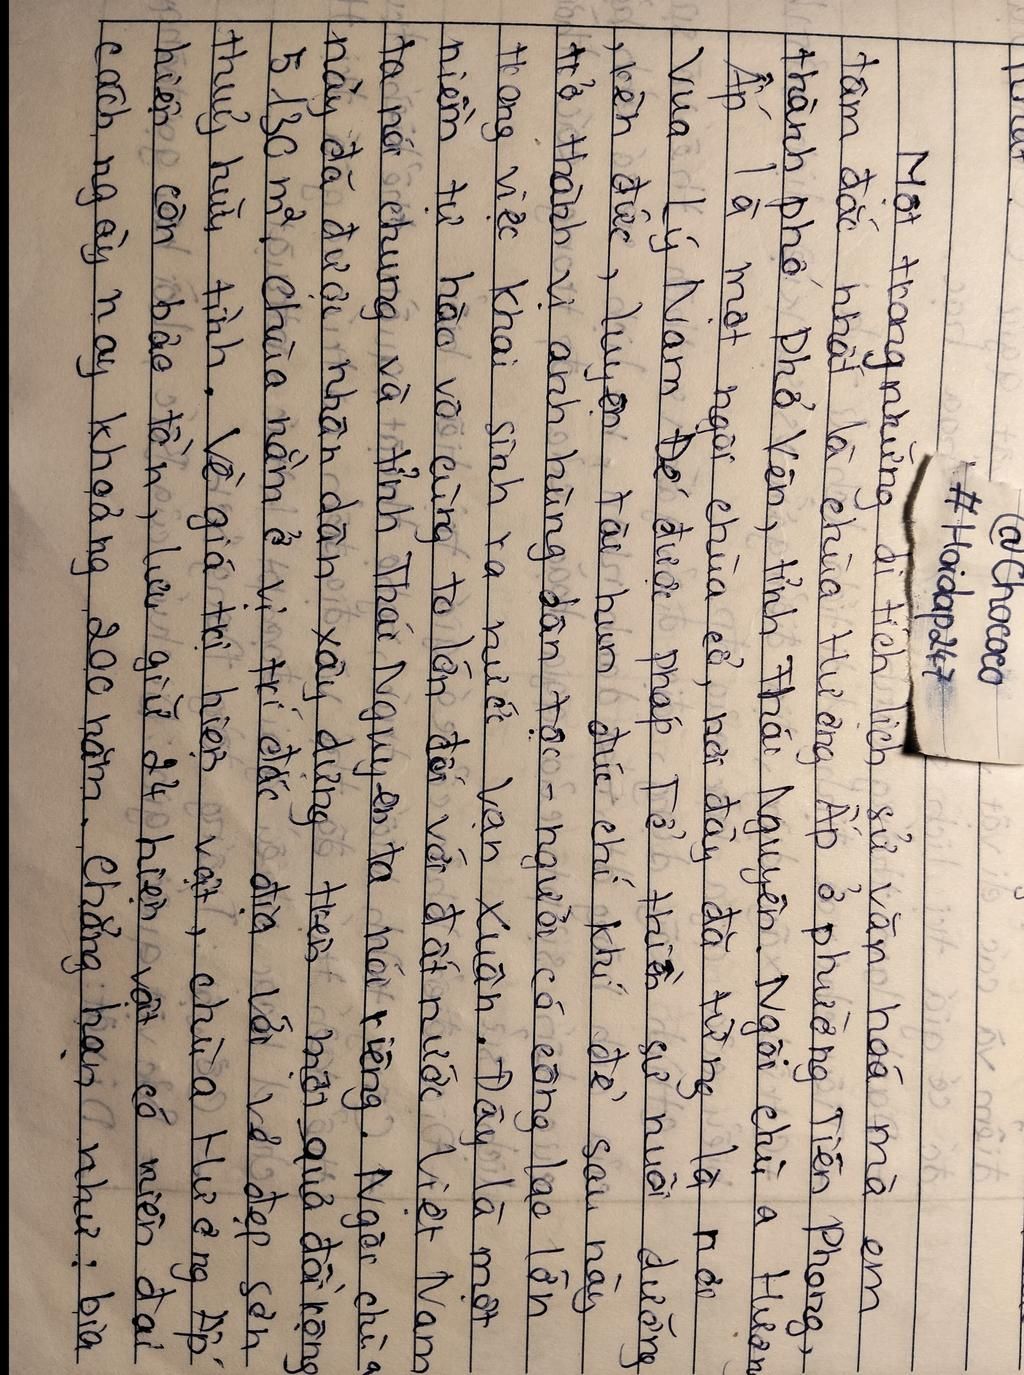 @Chococo
#Hoidap247
Một trong những di tích lịch sử văn hoá mà em
tâm đắc nhất là chùa Hương Ấp ở phường Tiên Phong,
thành phố Phổ Yên, tỉnh Thái Nguyên. Ngôi chùa Hương
Ấp là một ngôi chùa cổ, nơi đây đã từng là nơi
Vua Lý Nam Đế được pháp Tổ thiền sư nuôi dưỡng
, rèn đức, luyện tài hun đúc chí khí để sau này
trở thành vị anh hùng dân tộc - người có công lao lớn
trong việc khai sinh ra nước Vạn Xuân. Đây là một
niềm tự hào vô cùng to lớn đối với đất nước Việt Nam
ta nói chung và tỉnh Thái Nguyên ta nói riêng. Ngôi chùa
này đã được nhân dân xây dựng trên một quả đồi rộng
5130m², chùa nằm ở vị trí đắc địa với vẻ đẹp sơn
thuỷ hữu tình. Về giá trị hiện vật, chùa Hương Ấp
hiện còn bảo tồn, lưu giữ 24 hiện vật có niên đại
cách ngày nay khoảng 200 năm. Chẳng hạn như: bia